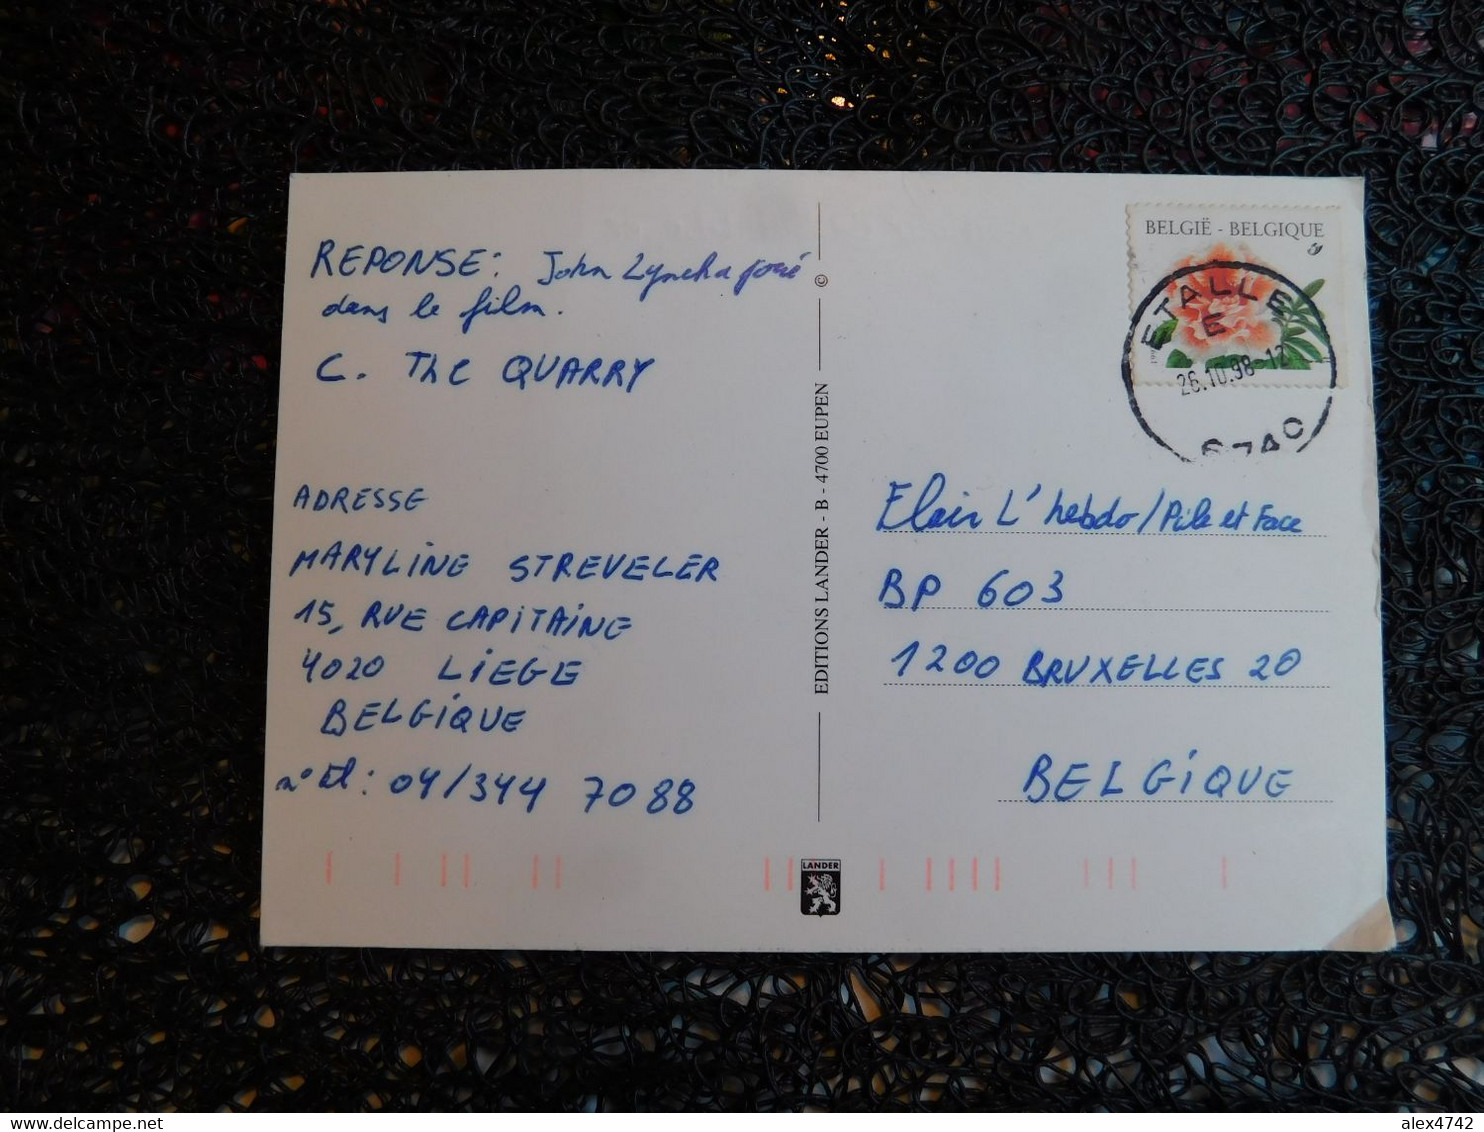 REPONSE: John Lynch a joué
dans le film.
C. The QUARRY
ADRESSE
MARYLINE STREVELER
15, RUE CAPITAINE
4020 LIEGE
BELGIQUE
n° tél: 04/344 7088
EDITIONS LANDER - B - 4700 EUPEN ©
LANDER
BELGIË - BELGIQUE
ETALLE
E
26.10.98-12
6740
L'hebdo/Pile et Face
BP 603
1200 BRUXELLES 20
BELGIQUE
delcampe.net
alex4742